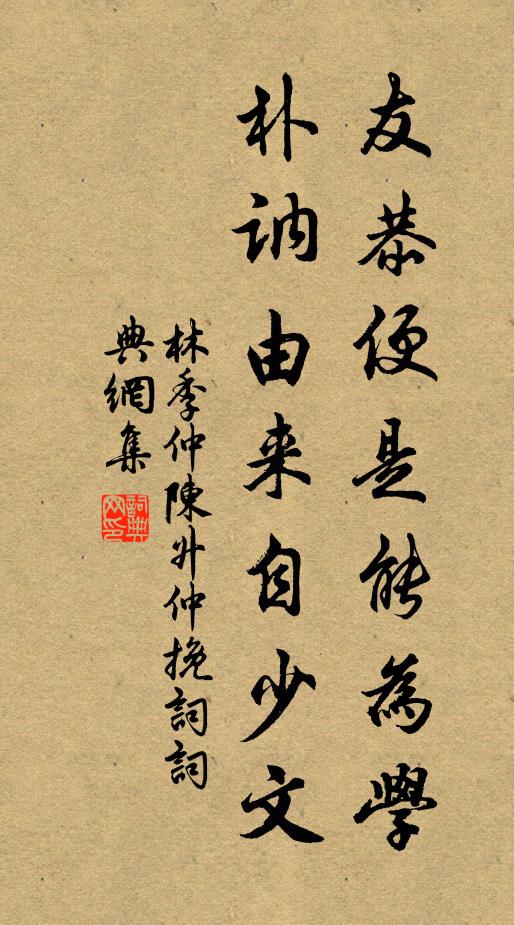 友恭便是能為學
朴訥由来自少文
林季仲陳升仲挽詞詞
典網集
詞典网印